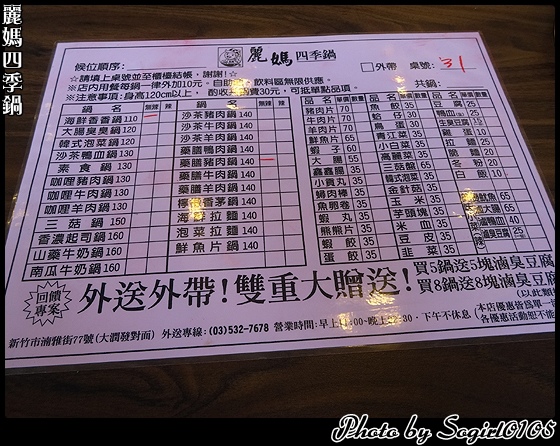 麗媽四季鍋
麗媽四季鍋
候位順序:
外帶 桌號: 31
☆請填上桌號並至櫃檯結帳,謝謝!☆
共鍋:
※店內用餐每鍋一律外加10元。自助 飲料區無限供應。
※注意事項:身高120cm以上, 酌收 消費30元,可抵單點品項。
鍋名 無辣 辣 鍋名 無辣 辣
海鮮香香鍋 110
大腸臭臭鍋 120
韓式泡菜鍋 120
沙茶鴨血鍋 130
素食鍋 130
咖哩豬肉鍋 130
咖哩牛肉鍋 130
咖哩羊肉鍋 130
三菇鍋 150
香濃起司鍋 160
山藥牛奶鍋 160
南瓜牛奶鍋 160
沙茶豬肉鍋 140
沙茶牛肉鍋 140
沙茶羊肉鍋 140
藥膳鴨肉鍋 140
藥膳豬肉鍋 140
藥膳牛肉鍋 140
藥膳羊肉鍋 140
檸檬香茅鍋 140
海鮮拉麵 140
泡菜拉麵 140
鮮魚片鍋 140
品名 單價 數量 品名 單價 數量 品名 單價 數量
豬肉片 70
牛肉片 70
羊肉片 70
鮮魚片 60
蝦子 60
大腸 55
鑫鑫腸 35
小貢丸 35
婦肉棒 35
魚卵卷 35
蝦丸 35
熊熊片 35
蝦餃 35
蛋餃 35
魚餃 35
蛤仔 50
鳥蛋 30
青江菜 35
小白菜 35
高麗菜 35
三菇類 65
韓式泡菜 35
金針菇 35
玉米 35
芋頭塊 35
米血 35
豆皮 35
韭菜 35
豆腐 25
鴨血 25
雞蛋 10
拉麵 20
脆麵 20
冬粉 20
白飯 10
回饋專案
外送外帶!雙重大贈送!
買5鍋送5塊滷臭豆腐
買8鍋送8塊滷臭豆腐
(以此類
本店優惠皆為單一
各優惠活動恕不能
新竹市湳雅街77號(大潤發對面) 外送專線:(03)532-7678 營業時間:早上 :00-晚上 :30,下午不休息
Photo by Sagirl0105